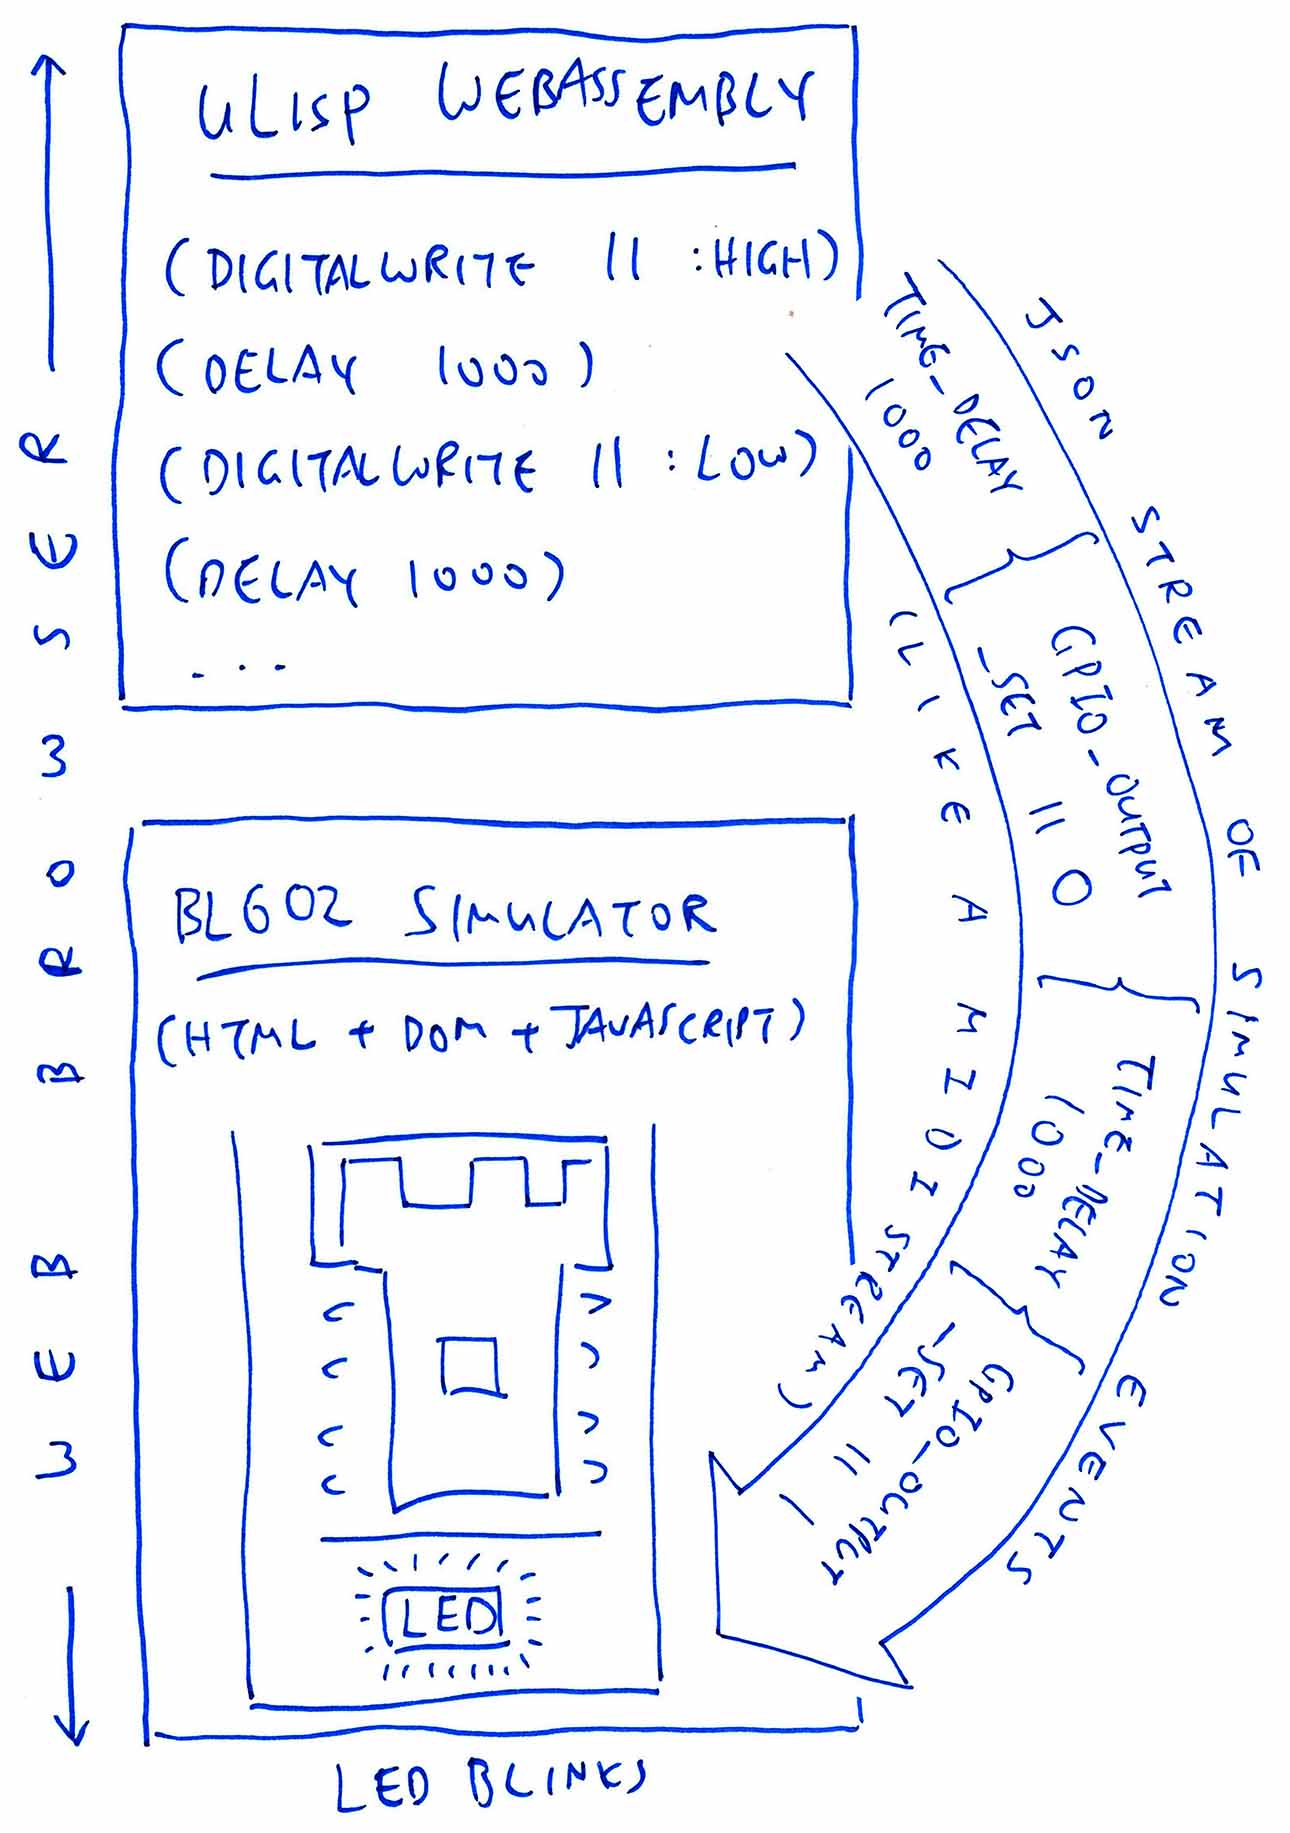 WEB BROWSER
uLISP WEBASSEMBLY
(DIGITALWRITE 11 :HIGH)
(DELAY 1000)
(DIGITALWRITE 11 :LOW)
(DELAY 1000)
...
JSON STREAM OF SIMULATION EVENTS
TIME_DELAY
1000
GPIO_OUTPUT
_SET 11 0
TIME_DELAY
1000
GPIO_OUTPUT
_SET 11 1
(LIKE A MIDI STREAM)
BL602 SIMULATOR
(HTML + DOM + JAVASCRIPT)
LED
LED BLINKS